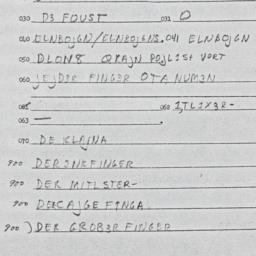 030 D3 FOUST 031 O
040 ELNBOJGN/ELNBOJGNS. 041 ELNBOJGN
050 DLON8 QRAJN POJLIST VORT
060 JEJD3R FINGER OTA NUM3N
062 1,TLIX3R-
063 —
070 DE KLAINA
900 DER2NKFINGER
900 DER MITLSTER-
900 DERCAJGE FINGA
900 ) DER GROB3R FINGER